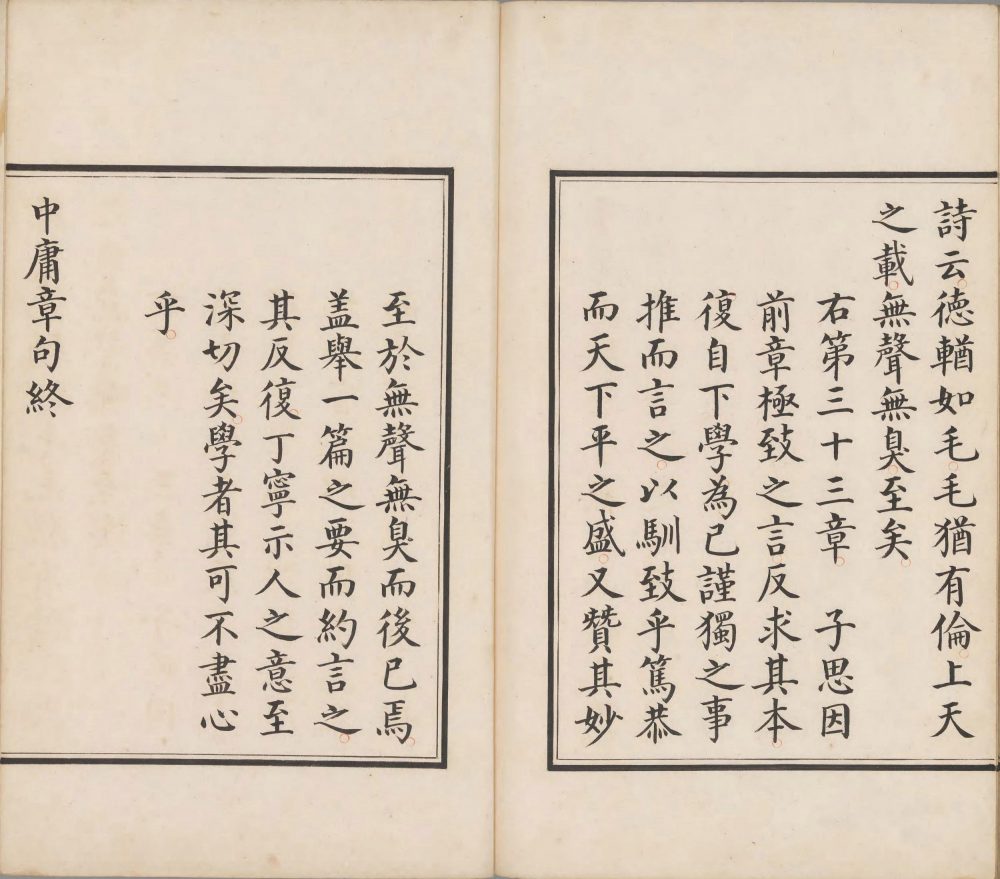 詩云德輶如毛毛猶有倫上天
之載無聲無臭至矣
右第三十三章　子思因
前章極致之言反求其本
復自下學為已謹獨之事
推而言之以馴致乎篤恭
而天下平之盛又贊其妙
至於無聲無臭而後已焉
盖舉一篇之要而約言之
其反復丁寧示人之意至
深切矣學者其可不盡心
乎
中庸章句終